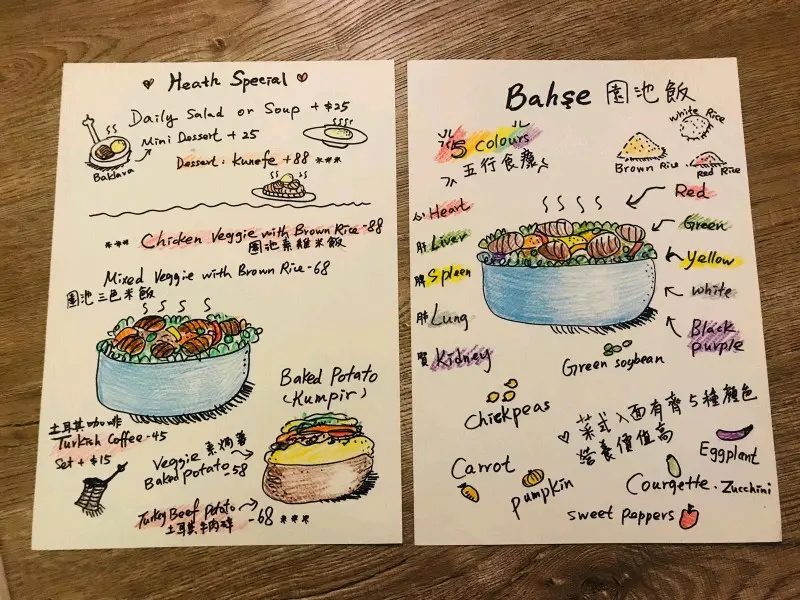 Heath Special
Daily Salad or Soup +$25
Mini Dessert + 25
Baklara
Dessert: Kunefe +88 ***
*** Chicken Veggie with Brown Rice -88
園池素雞米飯
Mixed Veggie with Brown Rice -68
園池三色米飯
Baked Potato
(Kumpir)
土耳其咖啡
Turkish Coffee -45
Set + $15
Veggie 素焗薯
Baked Potato 58
Turkey Beef Potato
土耳其牛肉碎 -68 ***
Bahşe 園池飯
White Rice
Brown Rice
Red Rice
5 colours
五行食療
心 Heart
肝 Liver
脾 Spleen
肺 Lung
腎 Kidney
Red
Green
Yellow
white
Black
purple
Green soybean
Chickpeas
菜式入面有齊5種顏色
營養價值高
Carrot
Pumpkin
Eggplant
Courgette. Zucchini
sweet peppers